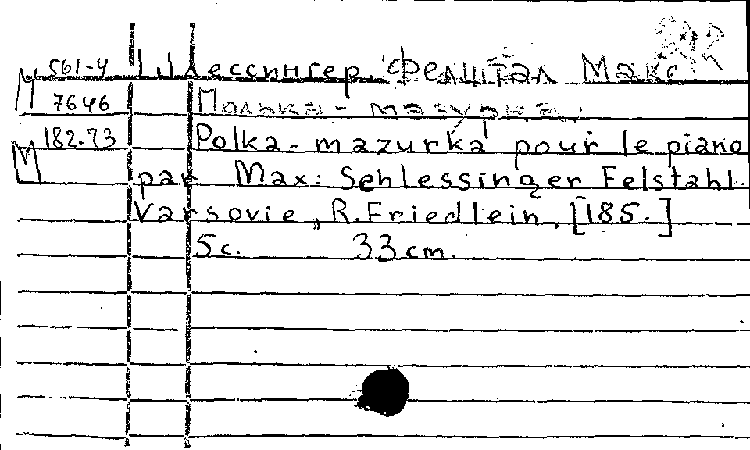 561-4 Шлессингер Фелштал Макс
M 7646 Полька - мазурка.
M 182.73 Polka - mazurka pour le piano
par Max: Sehlessinger Felstahl.
Varsovie, R. Friedlein, [185.]
5c. 33cm.